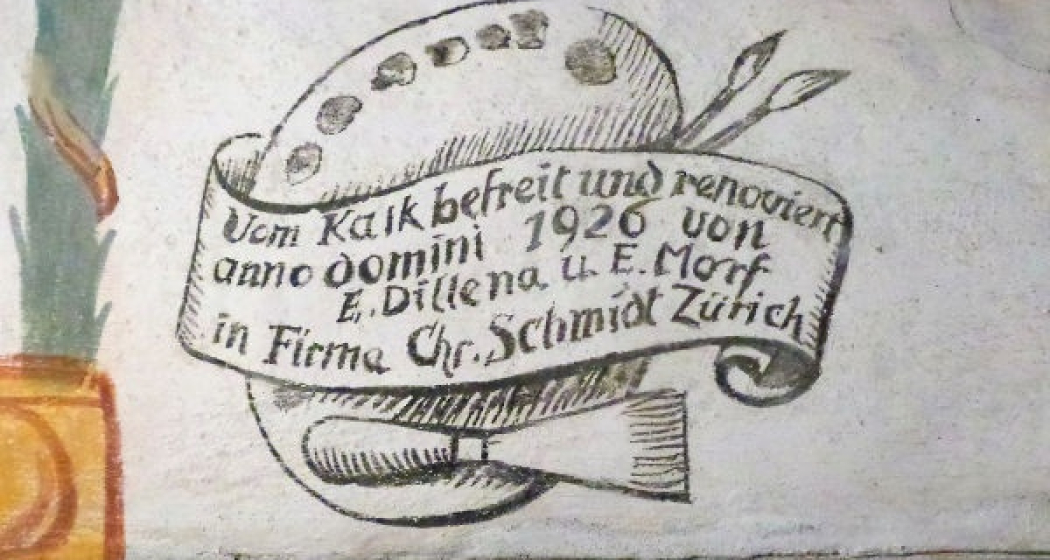 Vom Kalk befreit und renoviert
anno domini 1926 von
E. Dillena u. E. Morf
in Firma Chr. Schmidt Zürich